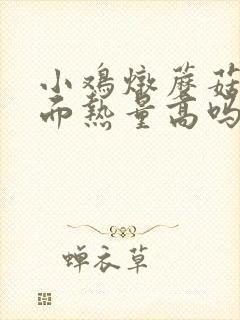 小鸡炖蘑菇
面热量高吗
蝉衣草